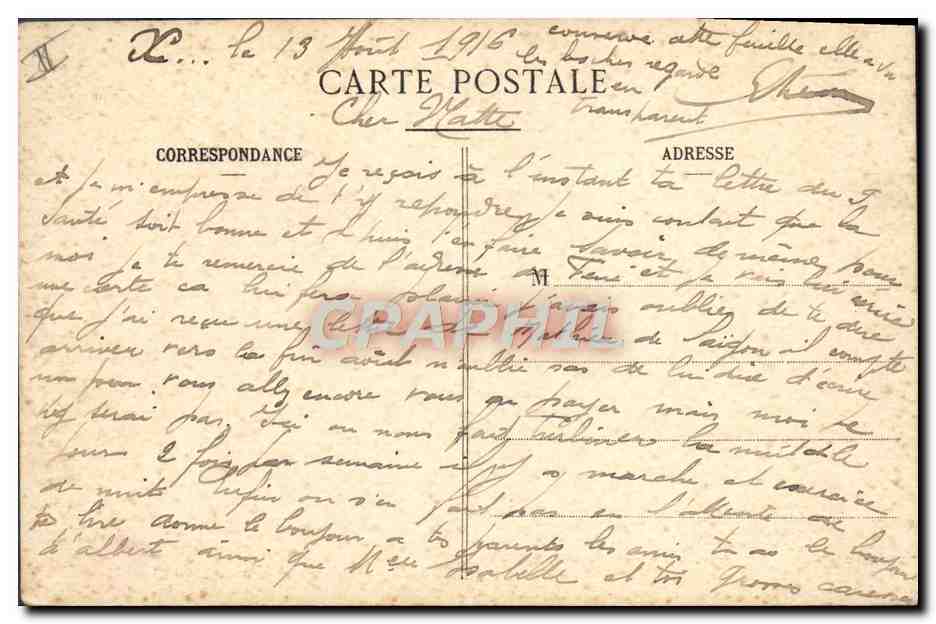 X... le 13 Août 1916
conserve cette feuille elle a vu
les boches regarde
en
transparent
CARTE POSTALE
Cher Matte
CORRESPONDANCE
ADRESSE
Je reçois à l'instant ta lettre du 9
et je m'empresse de t'y repondre, je suis content que la
santé soit bonne et puis t'en faire savoir de même pour
moi je te remercie de l'adresse de René et je vais lui écrire
M
une carte ca lui fera plaisir j'avais oublier de te dire
que j'ai reçu une lettre de de Saigon il compte
arriver vers la fin août n'oublie pas de lui dire d'écrire
un jour vous allez encore vous en payer mais moi je
n'y serai pas. Ici on nous fait turbiner la nuit de
jours 2 fois par semaine il y a marche et exercice
de nuit enfin on s'en fait pas en l'attente de
te lire donne le bonjour a tes parents les amis tu as le bonjour
d'albert ainsi que Melle Isabelle et toi grosses caresses
CPAPHIL